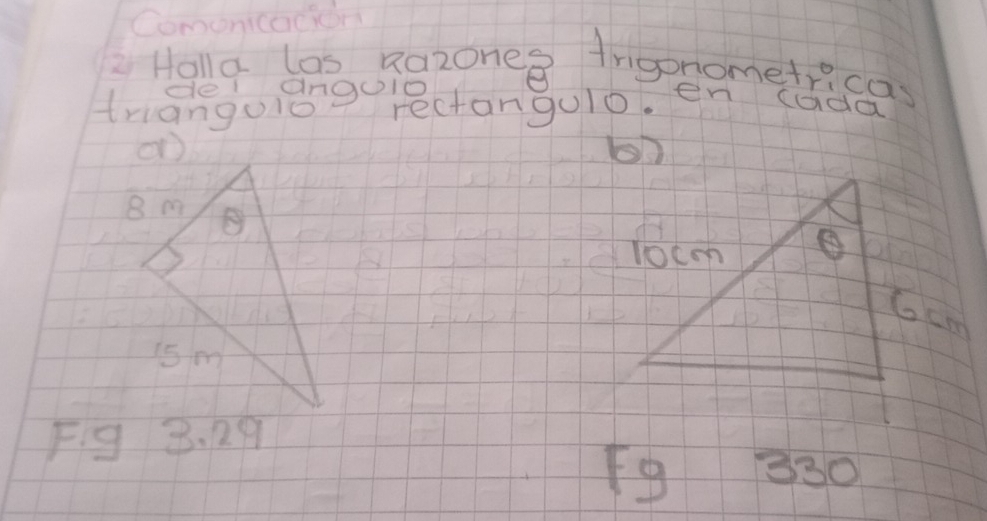 Comonicación
2 Halla las Razones trigonometricas
del angulo θ en cada
triangulo rectangulo.
a)
b)
8 m
θ
15 m
10cm
θ
6cm
Fig 3.29
Fg 330